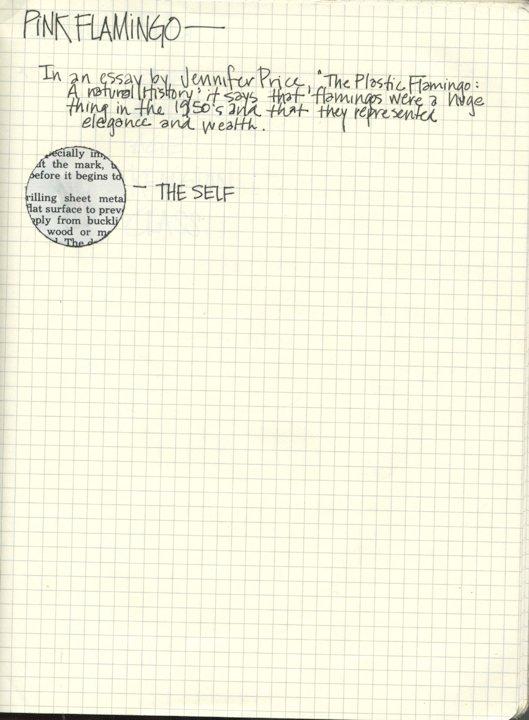 PINK FLAMINGO —
In an essay by Jennifer Price "The Plastic Flamingo:
A natural History" it says that 'flamingos were a huge
thing in the 1950's and that they represented
elegance and wealth.
ecially im
t the mark,
before it begins to
rilling sheet meta
flat surface to prev
ply from buckli
wood or m
The d
— THE SELF